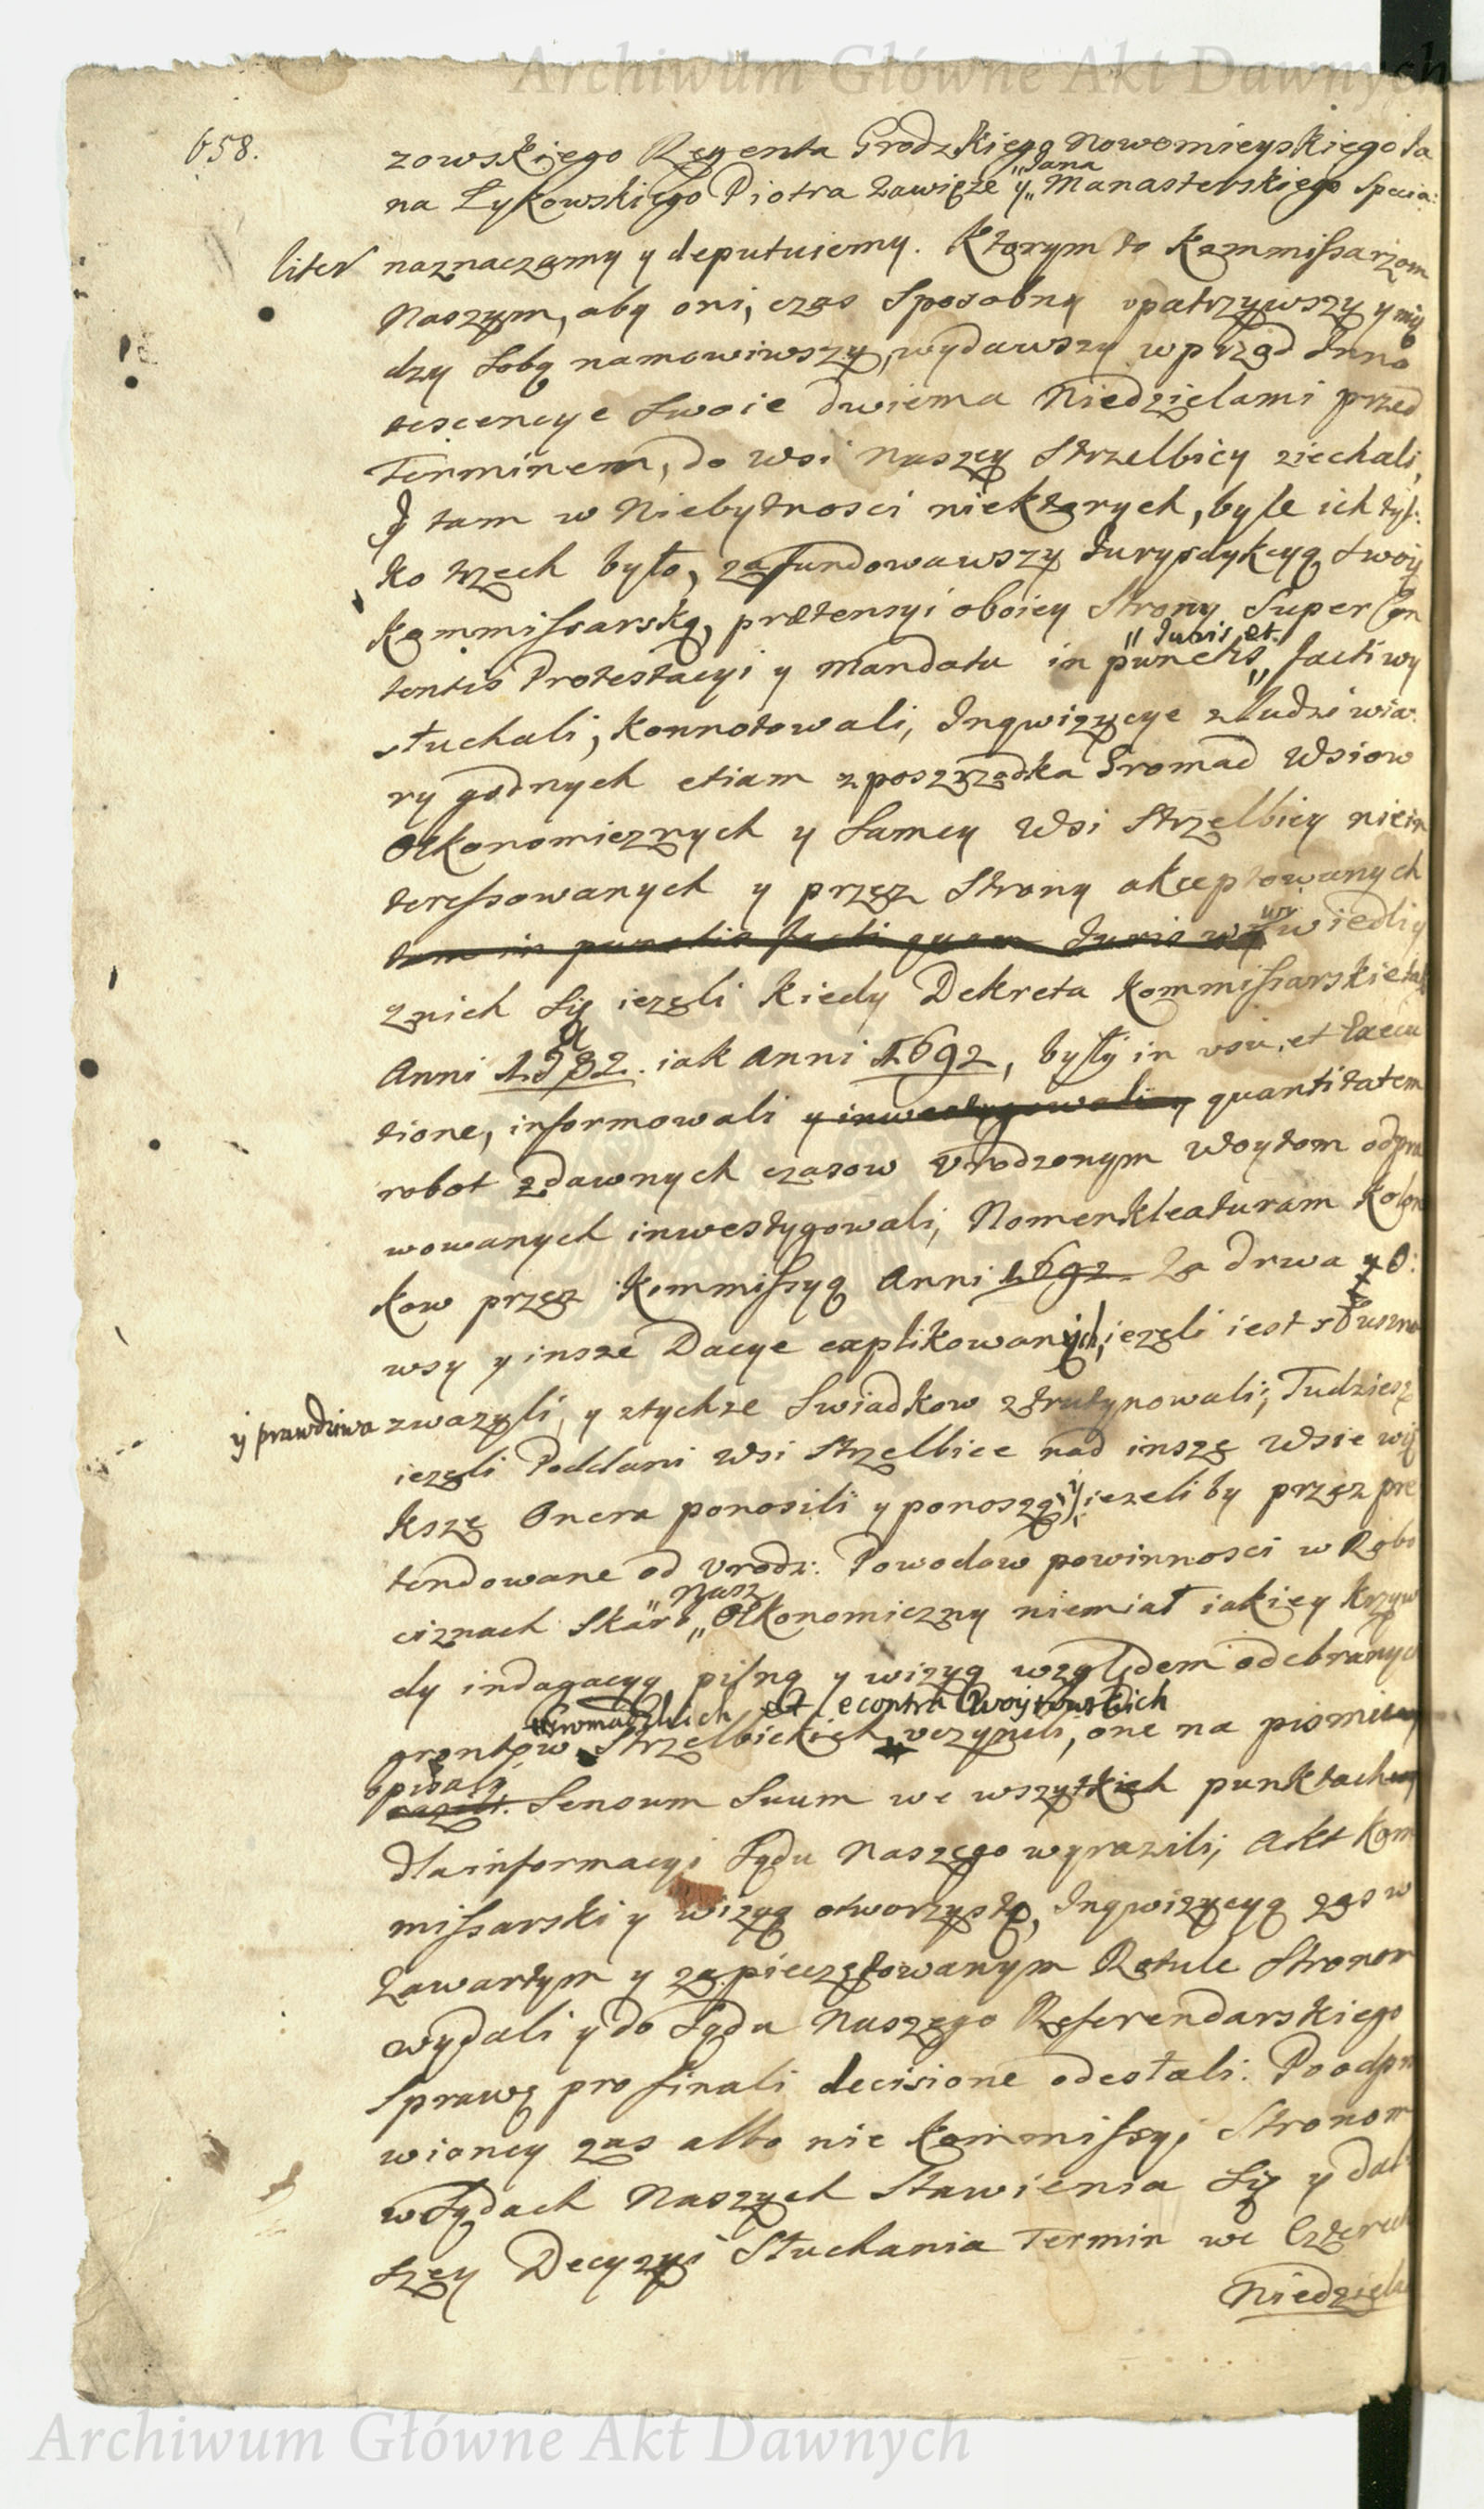 Archiwum Główne Akt Dawnych
658.
zowskiego Regenta Grodzkiego Nowomieyskiego Ja
na Łykowskiego Piotra Zawieże y „Jana„ Manasterskiego Specia:
liter naznaczamy y deputuiemy. Ktorym to Kommissarzom
Naszym, aby oni, czas sposobny upatrzywszy y mię
dzy sobą namowiwszy, wydawszy wprzod Inno
tescencye swoie dwiema Niedzielami przed
Terminem, do wsi Naszey Strzelbicy ziechali,
Y tam w Niebytnosci niektorych, byle ich tyl:
ko trzech było, zafundowawszy Jurysdykcyą swoię
Kommissarską, prætensyi oboiey Strony Super Con
tentis Protestacyi y Mandatu in punctis „Juris et„ facti wy
słuchali, konnotowali, Inqwizycye z Ludzi wia:
ry godnych etiam z poszrzodka Gromad Wsiow
Œkonomicznych y samey Wsi Strzelbicy niein
teressowanych y przez Strony akceptowanych
tam in punctis facti quam Juris wywiedli y
z nich się iezeli kiedy Dekreta Kommissarskie tak
Anni iak Anni 1692, były in usu, et Execu
tione, informowali y inwestygowali y quantitatem
robot z dawnych czasow Urodzonym Woytom odpra
wowanych inwestygowali, Nomenkleaturam Kolon
kow przez Kommissyą Anni 1692. Za drwa y O:
wsy y insze Dacye explikowanych, iezeli iest słuszna
y prawdziwa zwazyli, y z tychze Swiadkow ztrutynowali; Tudziesz
iezeli Poddani Wsi Strzelbice nad insze Wsie wię
ksze Onera ponosili y ponoszą; y iezeliby przez pre
tendowane od Urodz: Powodow powinnosci w Robo
ciznach Skarb „Nasz„ Œkonomiczny niemiał iakiey krzyw
dy indagacyą pilną y wizyą względem odebranych
Gromadzkich et e contra Woytowskich
grontow Strzelbickich uczynili, one na pismie
opisali
Sensum Suum we wszytkich punktach
dla informacyi Sądu Naszego wyrazili; Akt Kom
missarski y wizyą otworzysto, Inqwizycyą zas w
Zawartym y zapieczętowanym Rotule Stronom
wydali y do Sądu Naszego Referendarskiego
Sprawę pro finali decisione odesłali: Po odpra
wioney zas albo nie Kommissyi Stronom
w Sądach Naszych Stawienia się y dal
szey Decyzyi Słuchania Termin we Czterech
Niedziela
Archiwum Główne Akt Dawnych